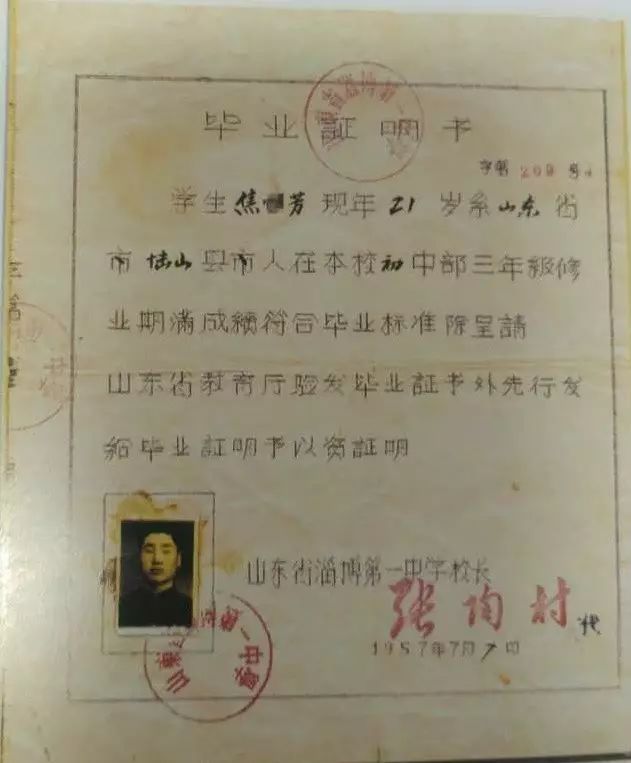 毕业証明书
字第 200 号
学生焦芳现年21岁系山东省
市 县市人在本校初中部三年级修
业期滿成績符合毕业标准除呈請
山东省教育厅验发毕业証书外先行发
給毕业証明书以资証明
山东省淄博第一中学校长
张均村 代
1957年7月7日